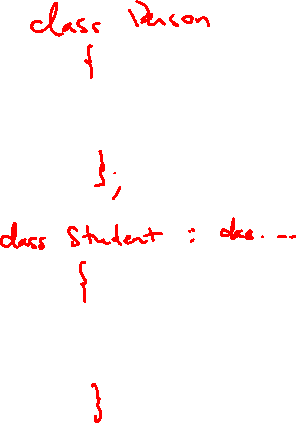 class Person
{
};
class Student :
{
}